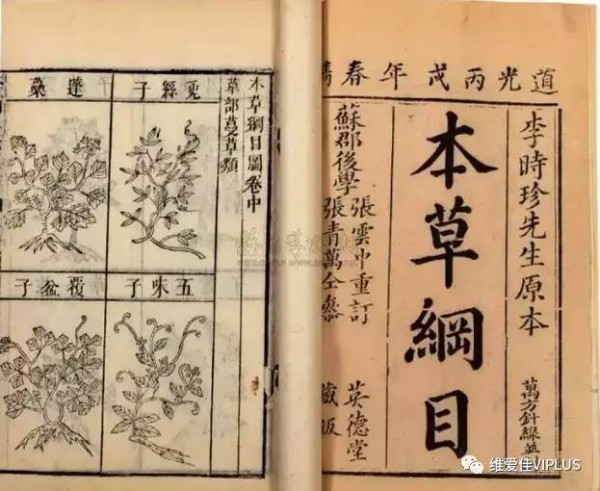 道光丙戌年春
李時珍先生原本
萬方針線
本草綱目
蘇郡後學
張雲中重訂
張青萬仝參
英德堂
藏版
本草綱目圖卷中
草部蔓草類
兎絲子
蓬蘽
五味子
覆盆子
维爱佳VIPLUS